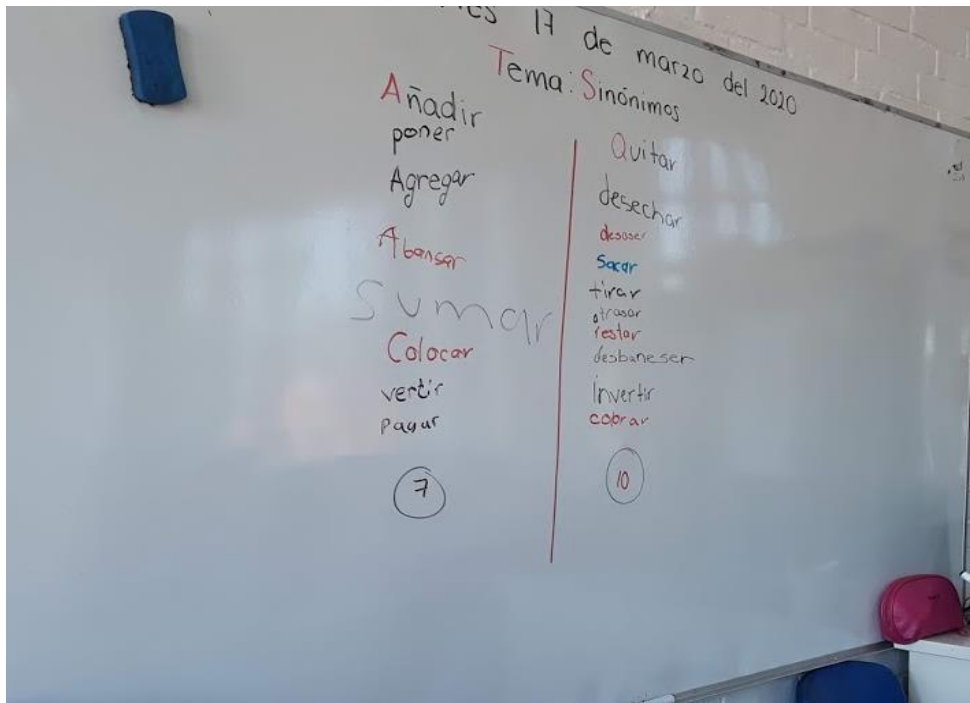 es 17 de marzo del 2020
Tema: Sinónimos
Añadir
poner
Agregar
Abansar
Sumar
Colocar
vertir
Pagar
7
Quitar
desechar
sacar
tirar
atrasar
restar
desbaneser
invertir
cobrar
10